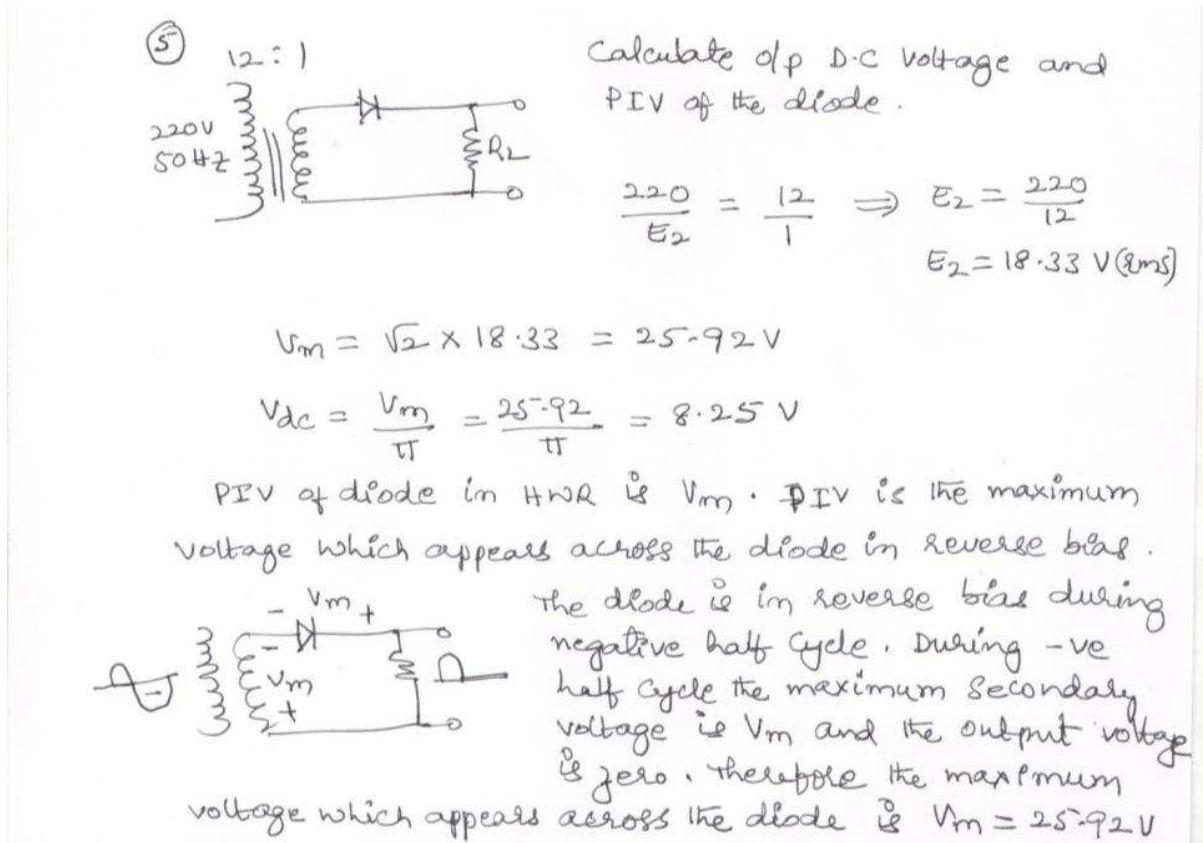 5
12 : 1
Calculate o/p D.C voltage and
PIV of the diode.
220V
50HZ
RL
220/E2 = 12/1 ⇒ E2 = 220/12
E2 = 18.33 V (rms)
Vm = √2 × 18.33 = 25.92 V
Vdc = Vm/π = 25.92/π = 8.25 V
PIV of diode in HWR is Vm. PIV is the maximum
voltage which appears across the diode in reverse bias.
- Vm +
The diode is in reverse bias during
negative half cycle. During -ve
- Vm +
half cycle the maximum secondary
voltage is Vm and the output voltage
is zero. Therefore the maximum
voltage which appears across the diode is Vm = 25.92V